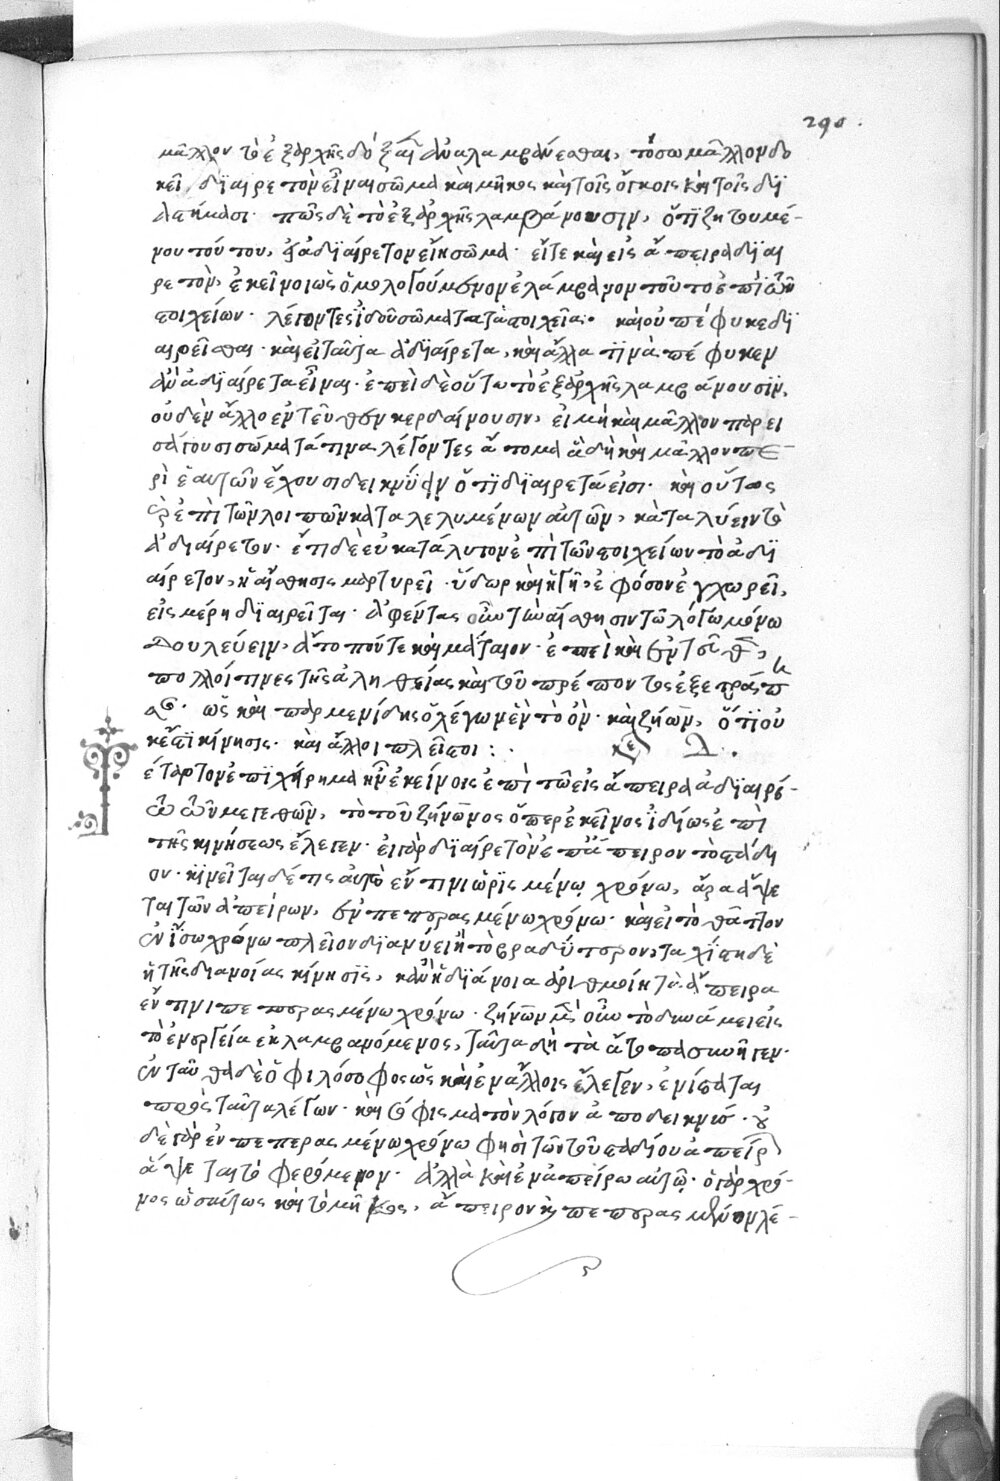 290.
μᾶλλον τὸ ἐξαρχῆς δόξαν ἀναλαμβάνεσθαι, τόσω μᾶλλον δο
κεῖ διαιρετὸν εἶναι σῶμα καὶ μῆκος καὶ τοῖς ὄγκοις καὶ τοῖς δι
αστήμασι· πῶς δὲ τὸ ἐξαρχῆς λαμβάνουσιν, ὅτι ζητουμέ-
νου τούτου, εἰ ἀδιαίρετον εἴη σῶμα· εἴτε καὶ εἰς ἄπειρα διαι
ρετὸν, ἐκεῖνοι ὡς ὁμολογούμενον ἐλάμβανον τοῦτο ἐπὶ τῶν
στοιχείων· λέγοντες ἰδοὺ σώματα τὰ στοιχεῖα· καὶ οὐ πέφυκε δι
αιρεῖσθαι· καὶ εἰ ταῦτα ἀδιαίρετα, καὶ ἄλλα τινὰ πέφυκεν
ἀδιαίρετα εἶναι· ἐπεὶ δὲ οὕτω τὸ ἐξαρχῆς λαμβάνουσιν,
οὐδὲν ἄλλο ἐντεῦθεν κερδαίνουσιν, εἰ μὴ καὶ μᾶλλον παρει
σάγουσι σώματά τινα λέγοντες ἄτομα ἃ δὴ καὶ μᾶλλον πε
ρὶ ἑαυτῶν ἔχουσι δεικνύειν ὅτι διαιρετά εἰσι· καὶ οὕτως
ἐπὶ τῶν λοιπῶν καταλελυμένων αὐτῶν, καταλύειν τὸ
ἀδιαίρετον· ἔτι δὲ εὐκατάλυτον ἐπὶ τῶν στοιχείων τὸ ἀδι
αίρετον, ἡ αἴσθησις μαρτυρεῖ· ὕδωρ καὶ γῆ, ἐφόσον ἐγχωρεῖ,
εἰς μέρη διαιρεῖται· ἀφέντας οὖν τὴν αἴσθησιν τῶ λόγω μόνω
δουλεύειν, ἄτοπόν τε καὶ μάταιον· ἐπεὶ καὶ ἐντεῦθεν,
πολλοί τινες τῆς ἀληθείας καὶ τοῦ πρέποντος ἐξετράπη
σαν· ὡς καὶ παρμενίδης ὁ λέγων ἓν τὸ ὄν· καὶ ζήνων, ὅτι οὐ
κ ἔστι κίνησις· καὶ ἄλλοι πλεῖστοι :· κε Δ.
έταρτον ἐπιχείρημα ἦν ἐκείνοις ἐπὶ τῶ εἰς ἄπειρα ἀδιαιρέ-
τω τῶν μεγεθῶν, τὸ τοῦ ζήνωνος ὅπερ ἐκεῖνος ἰδίως ἐπὶ
τῆς κινήσεως ἔλεγεν· εἰ γὰρ διαιρετὸν ἐπάπειρον τὸ στάδι
ον· κινεῖται δέ τις αὐτὸ ἔν τινι ὡρισμένω χρόνω, ἄρα ἅψε
ται τῶν ἀπείρων, ἐν πεπερασμένω χρόνω· καὶ εἰ τὸ θᾶττον
ἐν ἴσω χρόνω πλεῖον διανύει ἢ τὸ βραδύτερον, ταχίστη δὲ
ἡ τῆς διανοίας κίνησις, κἂν ἡ διάνοια ἀριθμοίη τὰ ἄπειρα
ἔν τινι πεπερασμένω χρόνω· ζήνων μὲν οὖν τὸ δυνάμει εἰς
τὸ ἐνεργεία ἐκλαμβανόμενος, ταῦτα δὴ τὰ ἄτοπα συνῆγεν·
ἐνταῦθα δὲ ὁ φιλόσοφος ὡς καὶ ἐν ἄλλοις ἔλεγεν, ἐνίσταται
πρὸς ταῦτα λέγων· καὶ σόφισμα τὸν λόγον ἀποδεικνύς· οὐ
δὲ γὰρ ἐν πεπερασμένω χρόνω φησὶ τῶν τοῦ σταδίου ἀπείρων
ἅψεται τὸ φερόμενον· ἀλλὰ καὶ ἐν ἀπείρω αὐτῶ· ὁ γὰρ χρό-
νος ὡσαύτως καὶ τὸ μῆκος, ἄπειρον καὶ πεπερασμένον λέ-